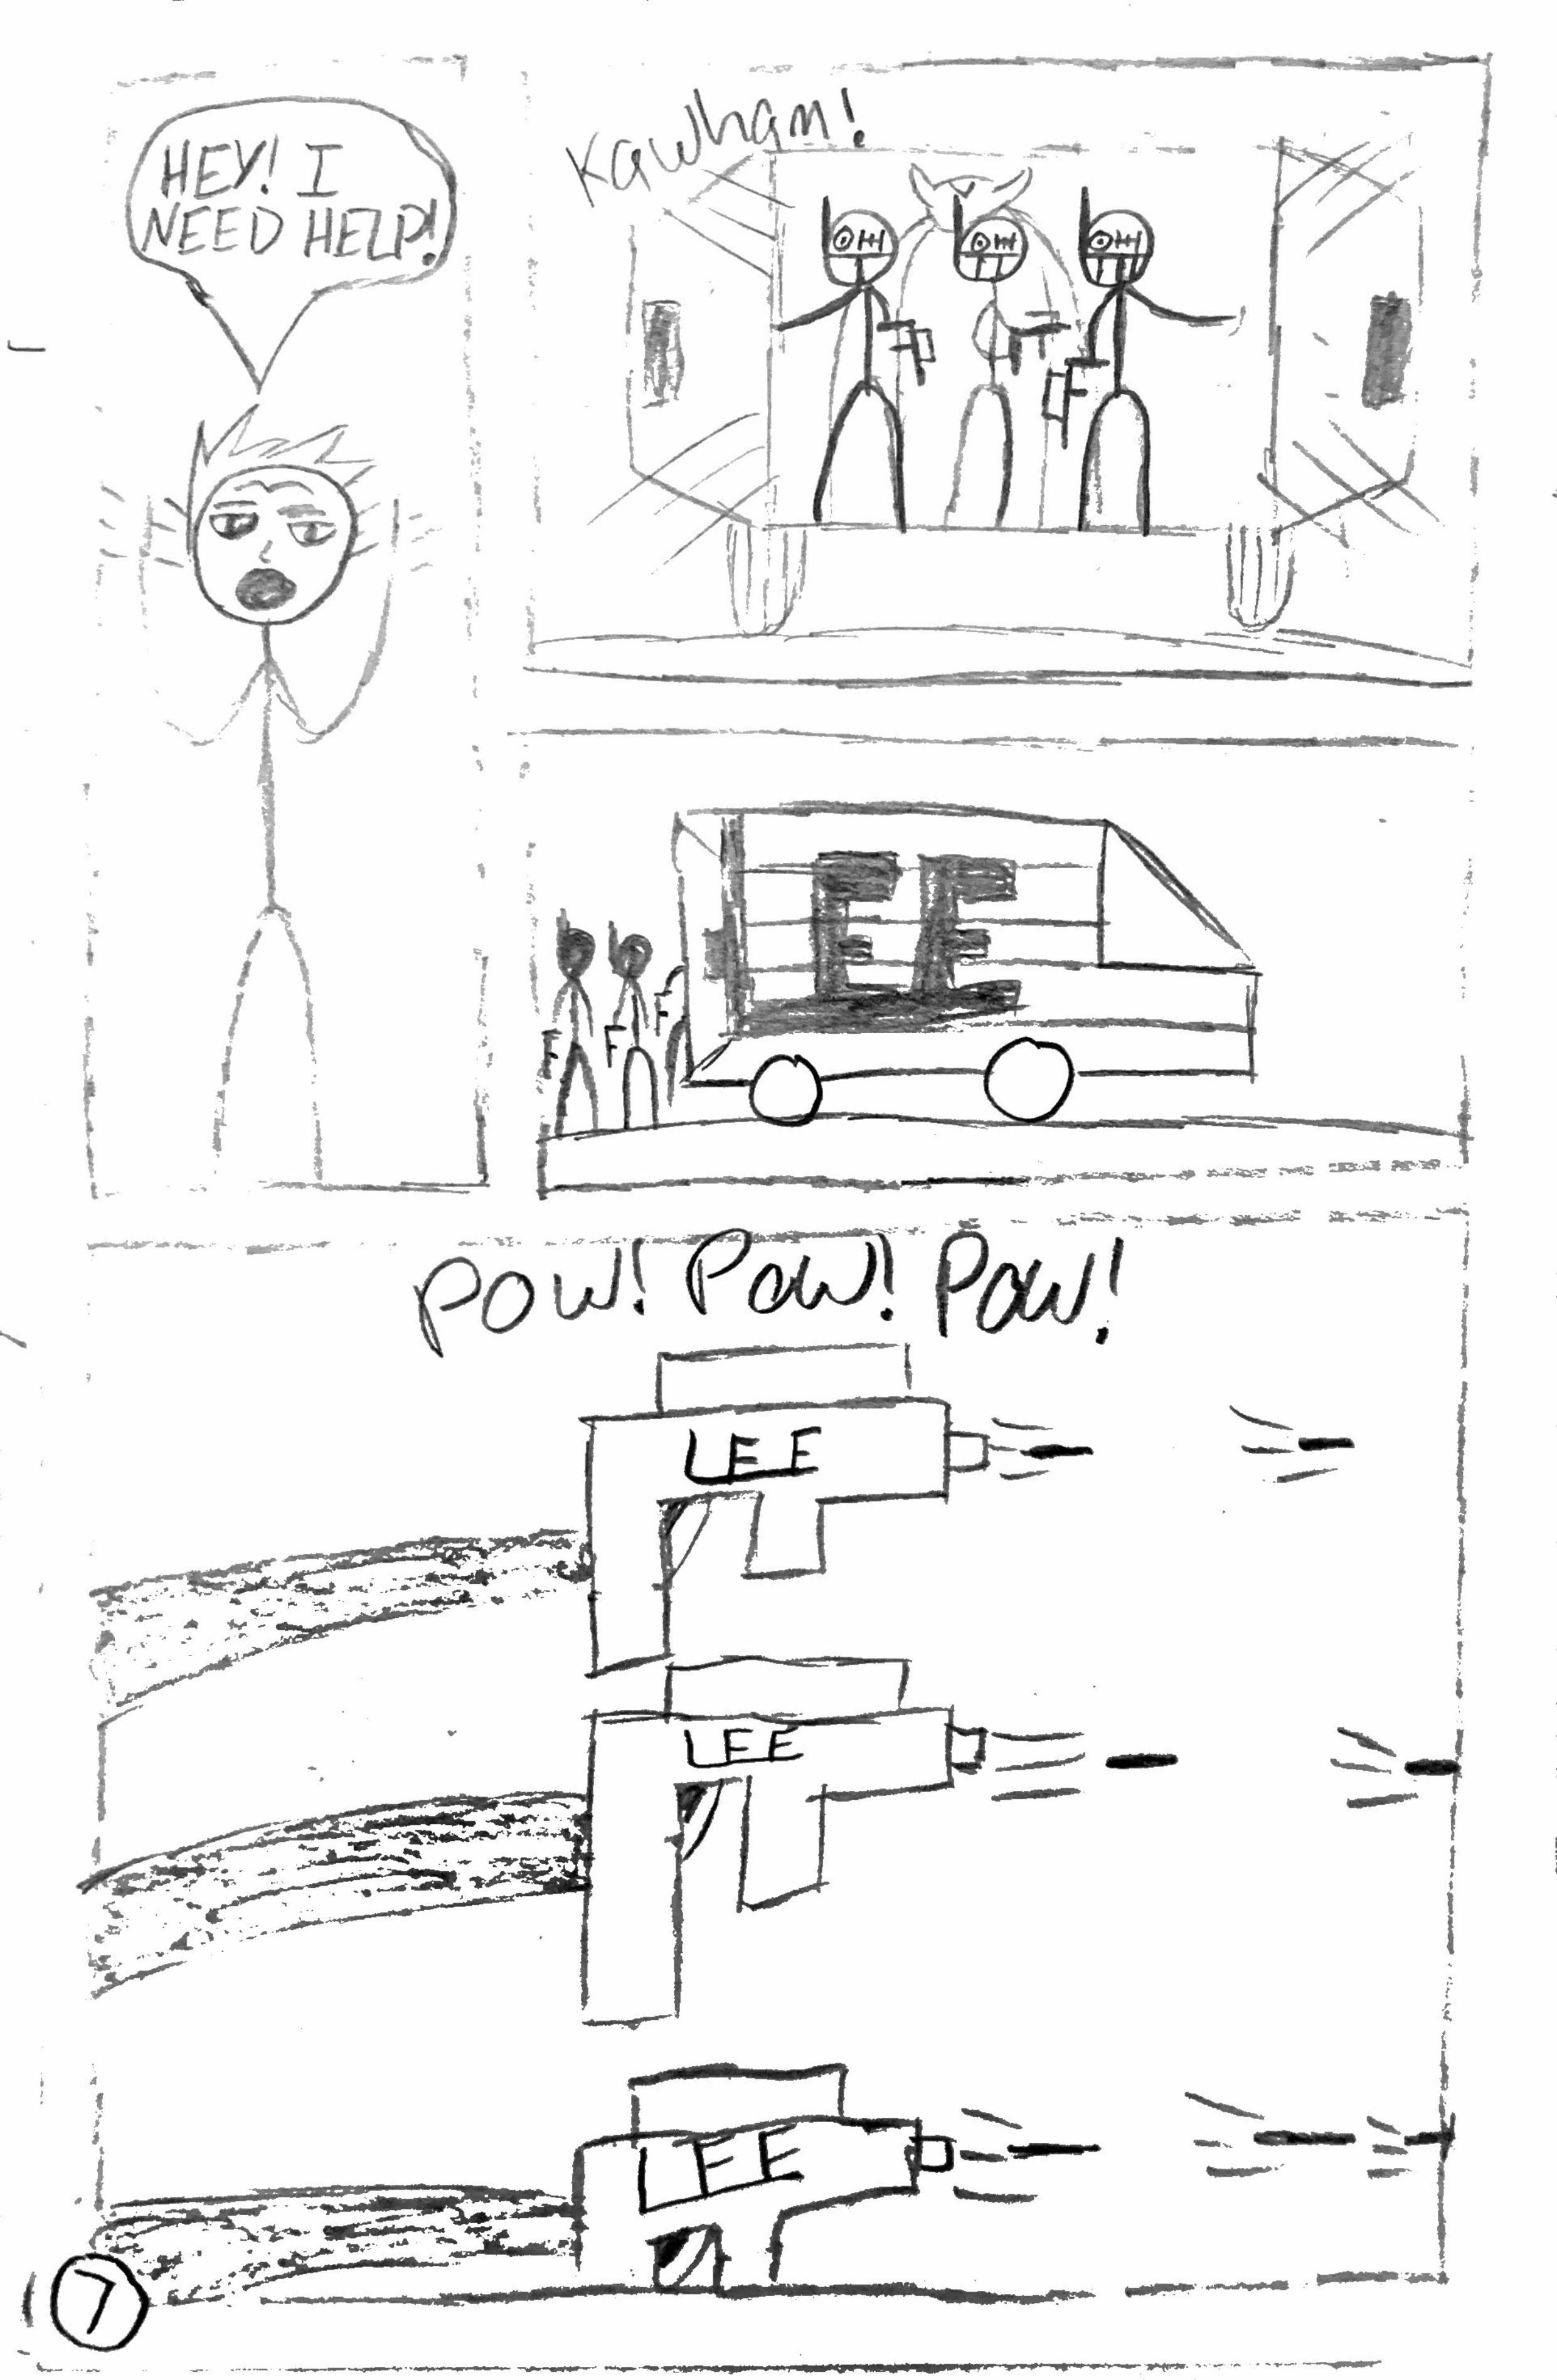 HEY! I
NEED HELP!
Kawham!
LEE
POW! POW! POW!
LEE
LEE
LEE
7